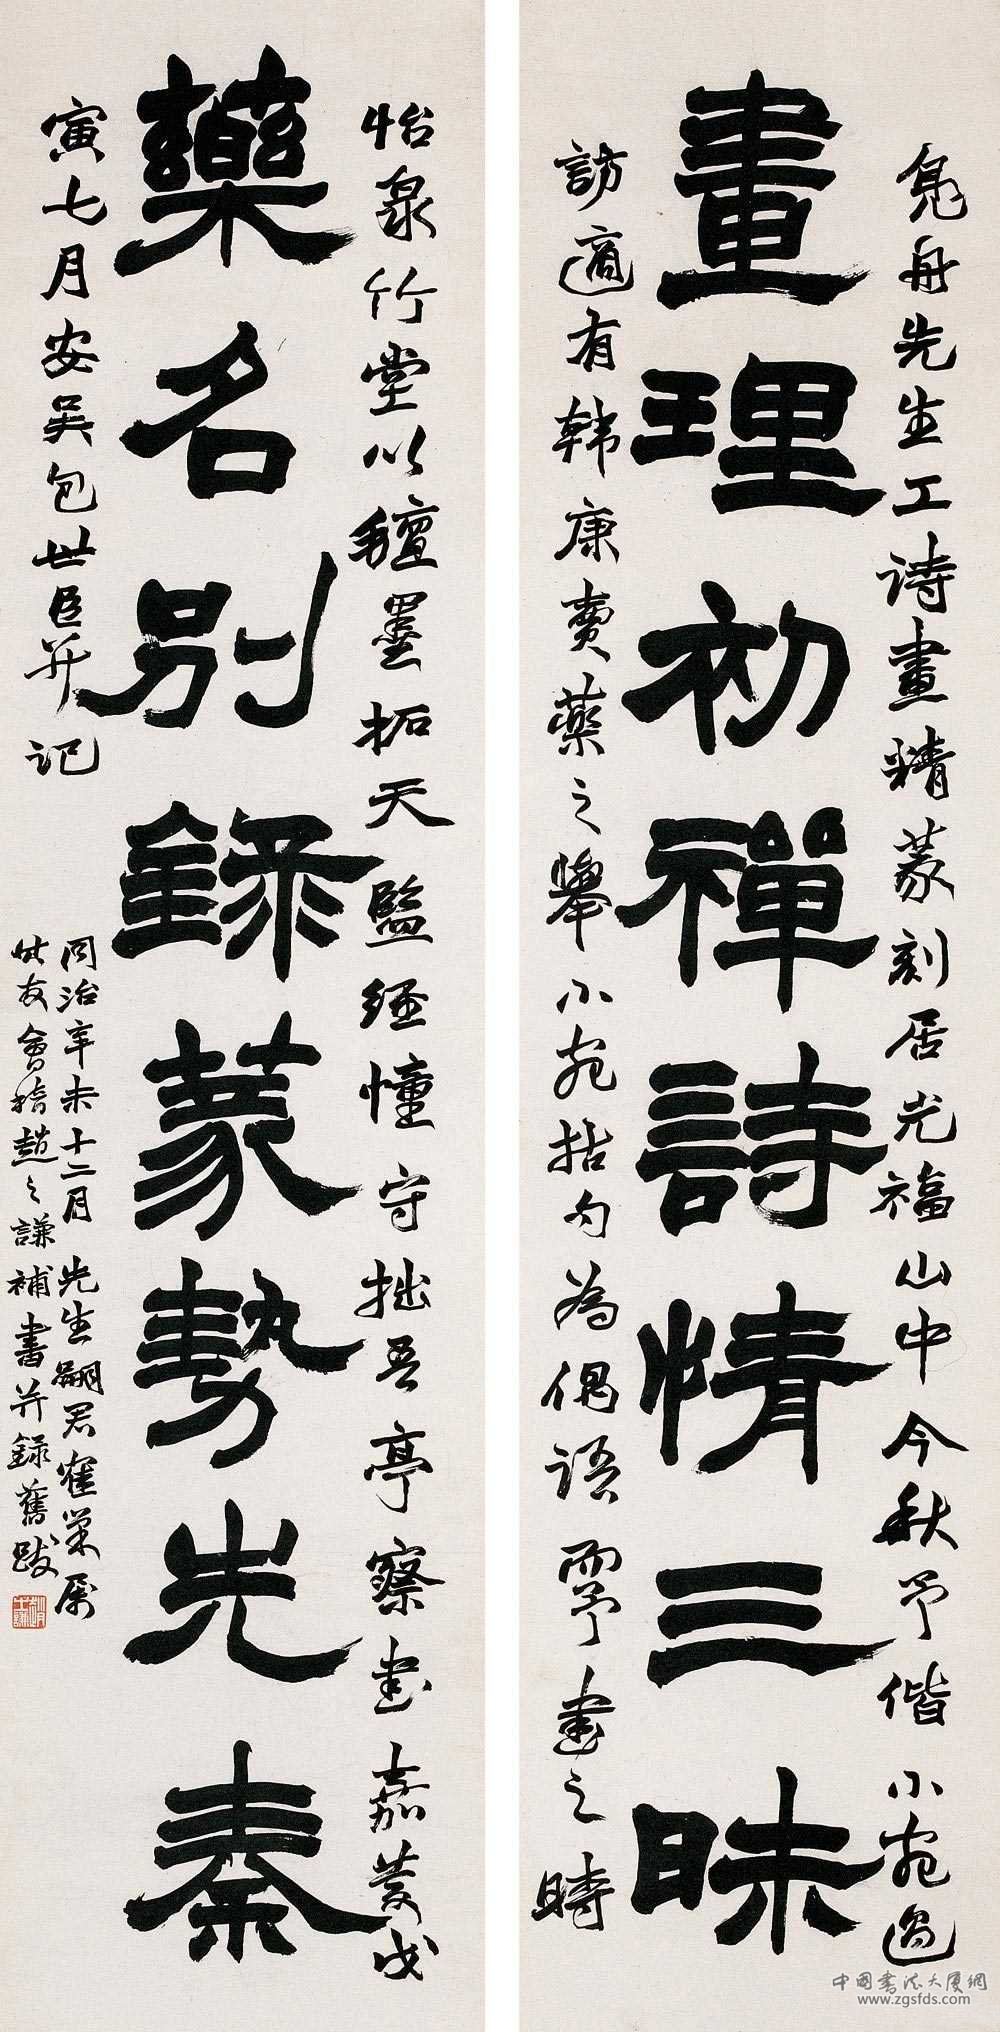 畫理初禪詩情三昧
凫舟先生工诗畫精篆刻居光福山中今秋予偕小宛過
訪適有韩康賣藥之舉小宛拈句為偶語而予書之時
藥名別錄篆勢先秦
怡泉竹堂以氊墨拓天監经幢守拙吾亭察書嘉慶戊
寅七月安吴包世臣并记
同治辛未十二月 先生嗣君 属
故友會稽趙之謙補書并録舊跋
中国書法大厦網
www.zgsfds.com